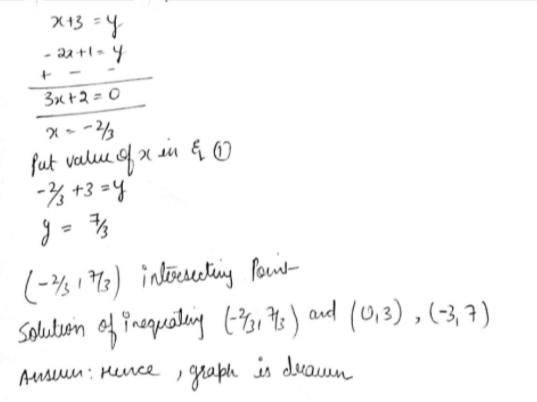 x+3 = y
- 2x+1 = y
+ - -
3x+2 = 0
x = -2/3
Put value of x in Eq ①
-2/3 +3 = y
y = 7/3
(-2/3, 7/3) intersecting Point
Solution of inequality (-2/3, 7/3) and (0,3), (-3,7)
Answer: Hence, graph is drawn